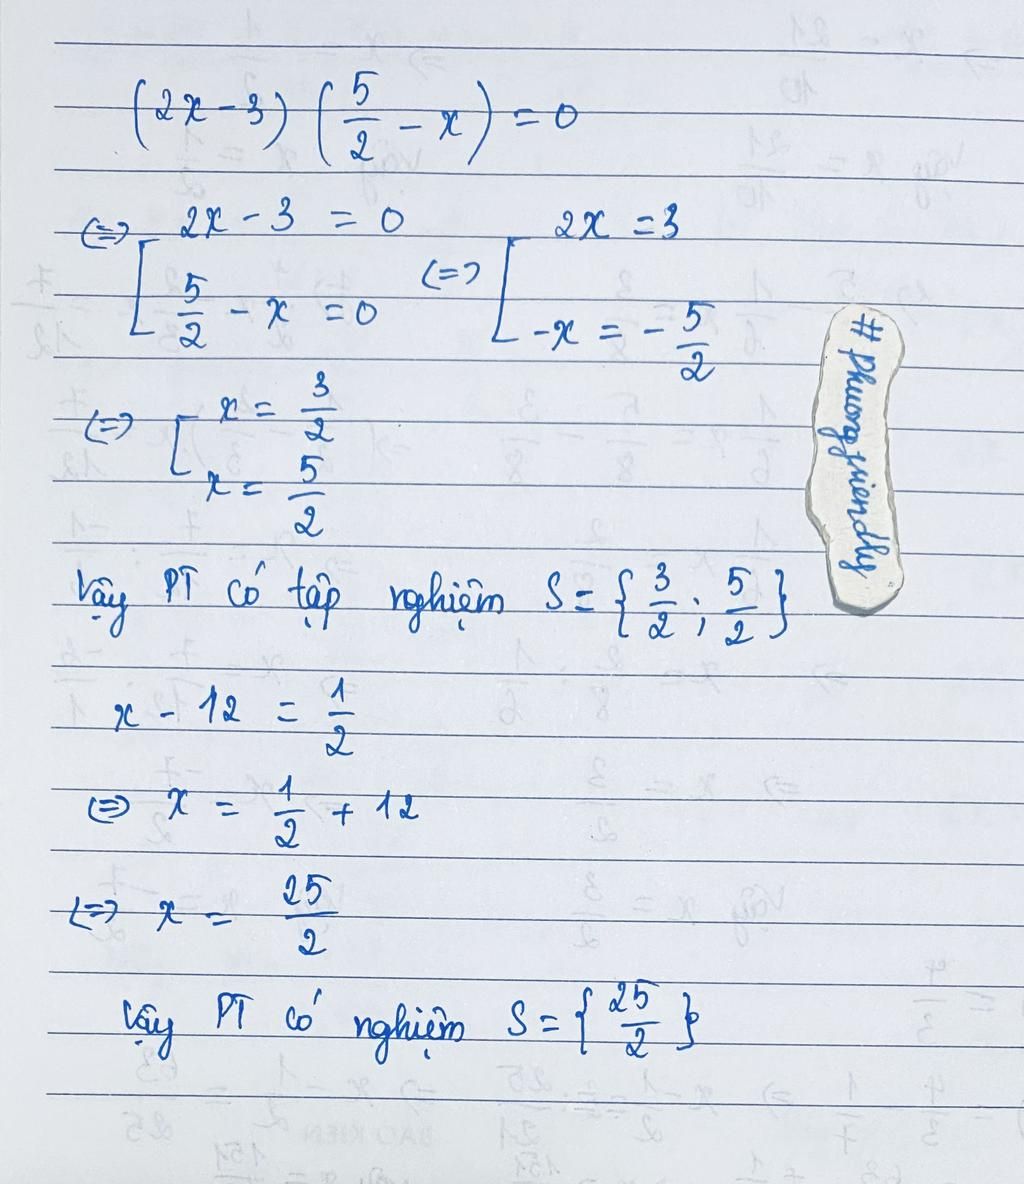 (2x - 3) (5/2 - x) = 0
⇔ [ 2x - 3 = 0 ; 5/2 - x = 0 ⇔ [ 2x = 3 ; -x = -5/2
⇔ [ x = 3/2 ; x = 5/2
Vậy PT có tập nghiệm S = {3/2 ; 5/2}
x - 12 = 1/2
⇔ x = 1/2 + 12
⇔ x = 25/2
Vậy PT có nghiệm S = {25/2}